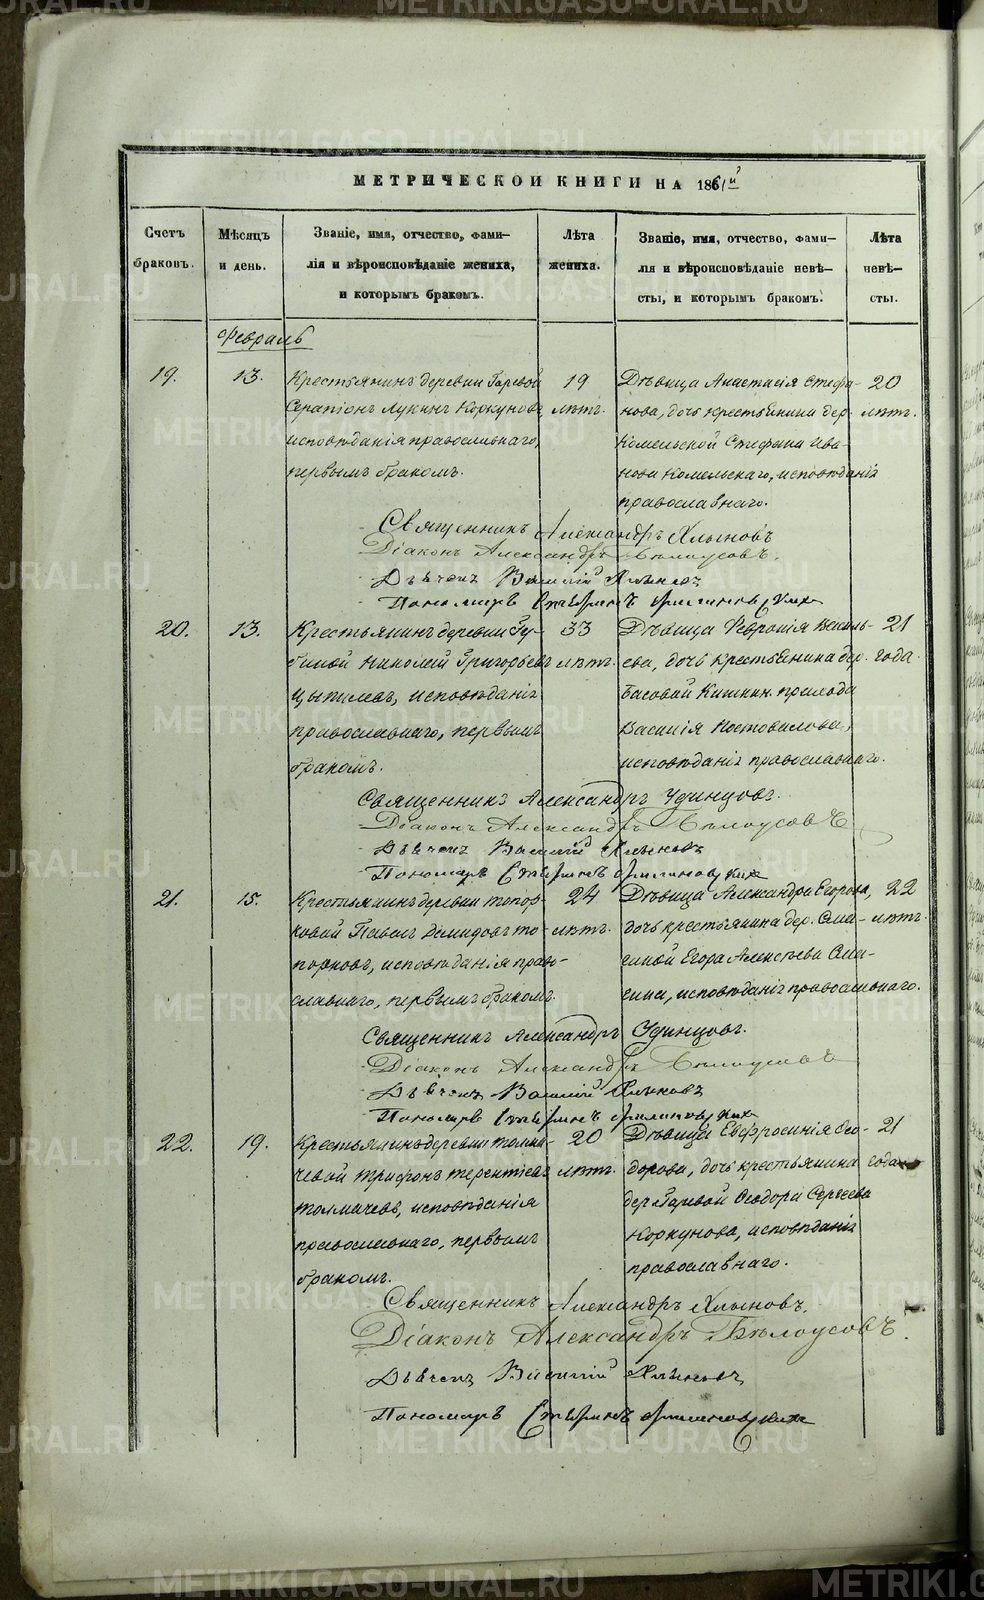 МЕТРИЧЕСКОЙ КНИГИ НА 1861й
Счетъ браковъ.
Мѣсяцъ и день.
Званіе, имя, отчество, фами-
лія и вѣроисповѣданіе жениха,
и которымъ бракомъ.
Лѣта жениха.
Званіе, имя, отчество, фами-
лія и вѣроисповѣданіе невѣ-
сты, и которымъ бракомъ.
Лѣта невѣ-
сты.
Февраль
19. 13. Крестьянинъ деревни Гаревой 19 Дѣвица Анастасія Стефа- 20
Серапіонъ Лукинъ Коркуновъ лѣтъ. нова, дочь крестьянина дер. лѣтъ.
исповѣданія православнаго, Комельской Стефана Ива-
первымъ бракомъ. нова Комельскаго, исповѣданія
православнаго.
Священникъ Александръ Хлыновъ
Діаконъ Александръ Бѣлоусовъ.
Дьячекъ Василій Хлыновъ
Пономарь
20. 13. Крестьянинъ деревни Гу- 33 Дѣвица Февронія Василь- 21
биной Николай Григорьевъ лѣтъ. ева, дочь крестьянина дер. года.
исповѣданія Басовой Кишкин. прихода
православнаго, первымъ Василія
бракомъ. исповѣданія православнаго.
Священникъ Александръ Удинцовъ.
Діаконъ Александръ Бѣлоусовъ
Дьячекъ Василій Хлыновъ
Пономарь
21. 15. Крестьянинъ деревни Топор- 24 Дѣвица Александра Егорова, 22
ковой Павелъ Демидовъ То- лѣтъ. дочь крестьянина дер. лѣтъ.
порковъ, исповѣданія право- Егора Алексѣева
славнаго, первымъ бракомъ. исповѣданія православнаго.
Священникъ Александръ Удинцовъ.
Діаконъ Александръ Бѣлоусовъ
Дьячекъ Василій Хлыновъ
Пономарь
22. 19. Крестьянинъ деревни Толма- 20 Дѣвица Евфросинія Ѳео- 21
чевой Трифонъ Терентіевъ лѣтъ. дорова, дочь крестьянина года
Толмачевъ, исповѣданія дер. Гаревой Ѳеодора Сергѣева
православнаго, первымъ Коркунова, исповѣданія
бракомъ. православнаго.
Священникъ Александръ Хлыновъ.
Діаконъ Александръ Бѣлоусовъ.
Дьячекъ Василій Хлыновъ
Пономарь
METRIKI.GASO-URAL.RU